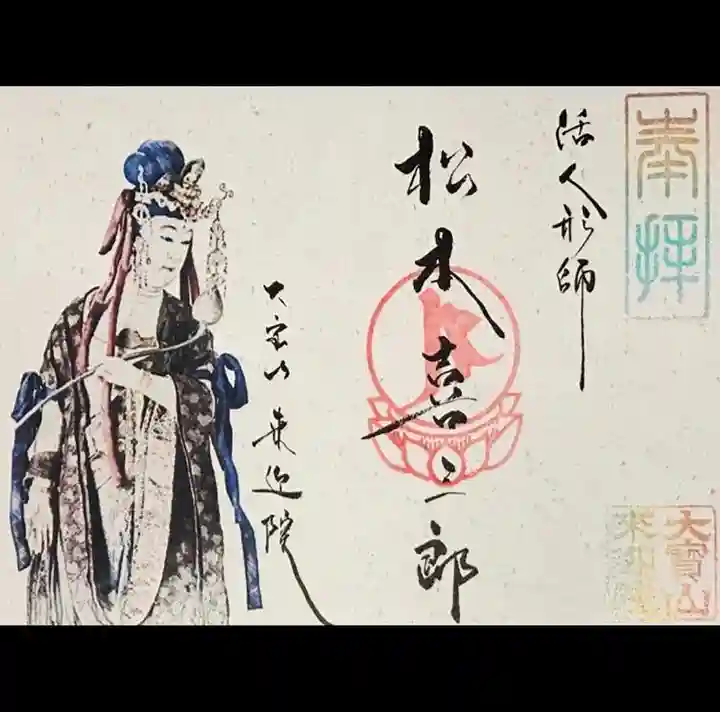 奉拝
活人形師
松本喜三郎
大宝山来迎院
大寳山
来迎院